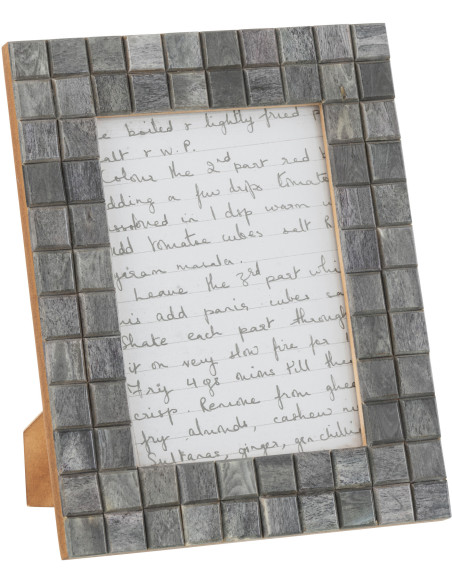 e boiled & lightly fried p
alt & W.P.
Colour the 2nd part red b
dding a few drps tomato
ssolved in 1 dsp warm w
add tomatoe cubes salt &
garam masala.
Leave the 3rd part whi
his add panir cubes sa
Shake each part through
it on very slow fire for
Fry 4 gs onions till the
crisp. Remove from ghee
fry almonds, cashew nu
Sultanas, ginger, gr. chili